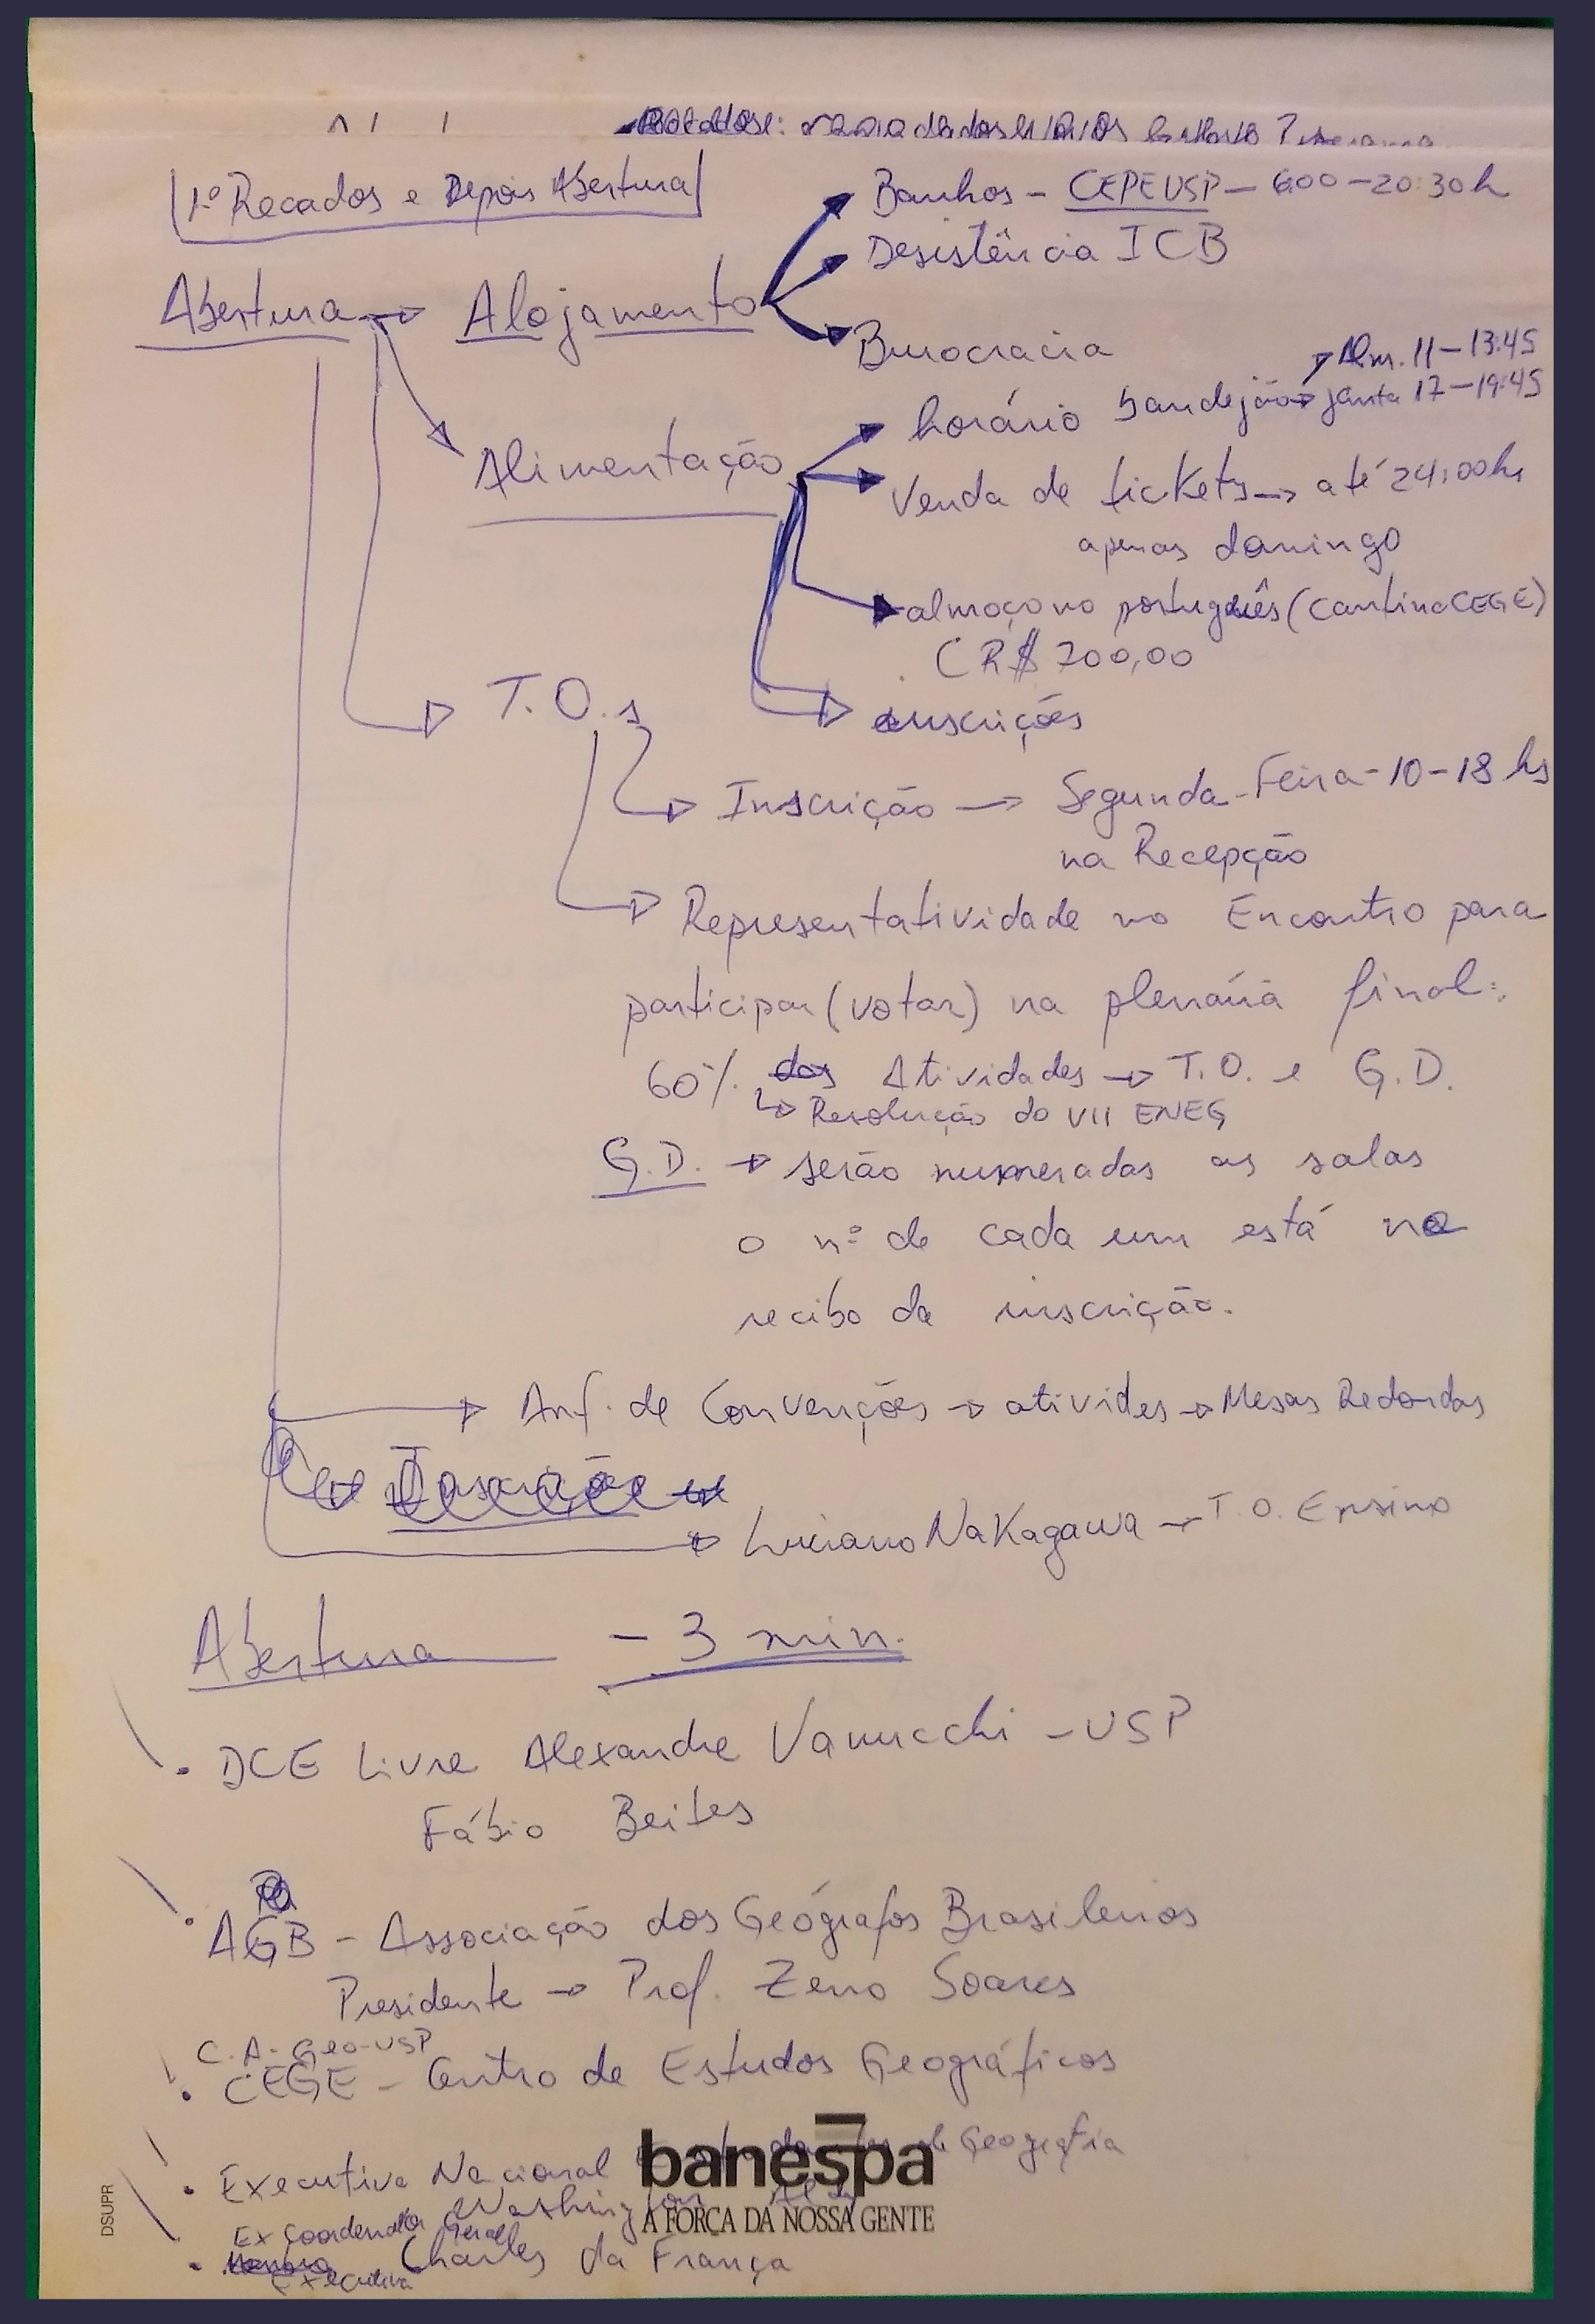 1º Recados e Depois Abertura
Banhos - CEPEUSP - 6:00 - 20:30 h
Desistência ICB
Abertura → Alojamento
Burocracia
Alm. 11 - 13:45
horário bandejão → janta 17 - 19:45
Alimentação
Venda de tickets → até 24:00 hs
apenas domingo
almoço no português (Cantina CEGE)
CR$ 700,00
T.O.s
inscrições
Inscrição → Segunda-Feira - 10 - 18 hs
na Recepção
Representatividade no Encontro para
participar (votar) na plenária final:
60% das Atividades → T.O. e G.D.
↳ Resolução do VII ENEG
G.D. → serão numeradas as salas
o nº de cada um está no
recibo da inscrição.
Anf. de Convenções → ativides → Mesas Redondas
Inscrição
Luciano Nakagawa → T.O. Ensino
Abertura - 3 min.
• DCE Livre Alexandre Vanucchi - USP
Fábio Beites
• AGB - Associação dos Geógrafos Brasileiros
Presidente → Prof. Zeno Soares
C.A. Geo-USP
• CEGE - Centro de Estudos Geográficos
• Executiva Nacional de Geografia
Washington
banespa
A FORÇA DA NOSSA GENTE
Ex Coordenador Geral
• Charles da França
Executiva
DSUPR